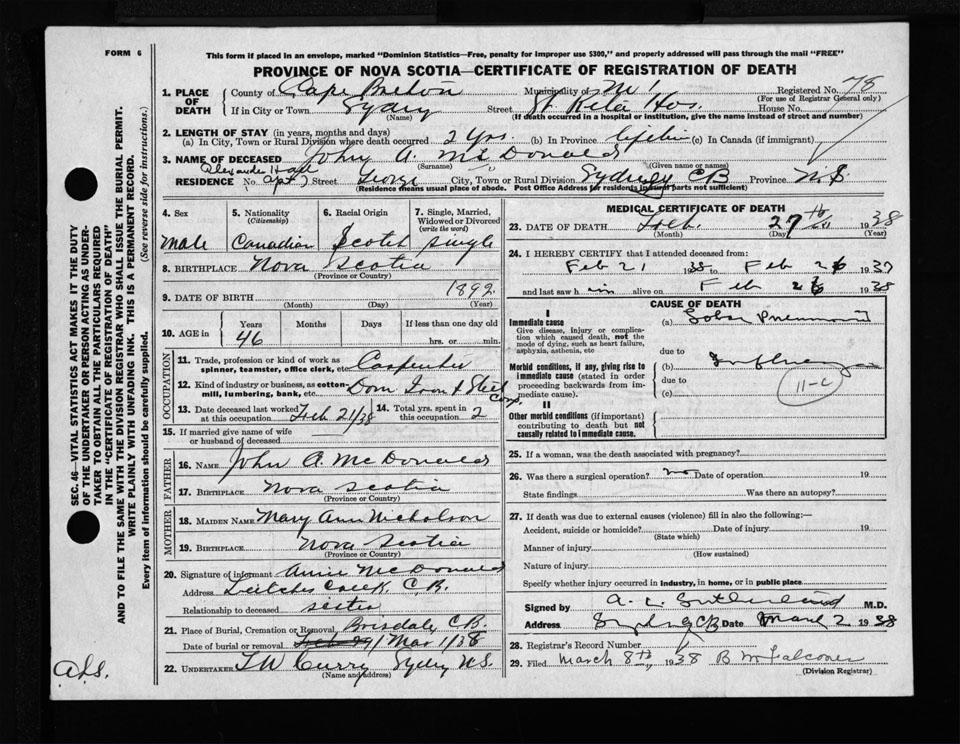 FORM 6
This form if placed in an envelope, marked "Dominion Statistics—Free, penalty for improper use $300," and properly addressed will pass through the mail "FREE"
PROVINCE OF NOVA SCOTIA—CERTIFICATE OF REGISTRATION OF DEATH
SEC. 46—VITAL STATISTICS ACT MAKES IT THE DUTY
OF THE UNDERTAKER OR PERSON ACTING AS UNDER-
TAKER TO OBTAIN ALL THE PARTICULARS REQUIRED
IN THE "CERTIFICATE OF REGISTRATION OF DEATH"
AND TO FILE THE SAME WITH THE DIVISION REGISTRAR WHO SHALL ISSUE THE BURIAL PERMIT.
WRITE PLAINLY WITH UNFADING INK. THIS IS A PERMANENT RECORD.
Every item of information should be carefully supplied. (See reverse side for instructions.)
1. PLACE OF DEATH County of Cape Breton Municipality of Registered No. 78
(For use of Registrar General only)
If in City or Town Sydney Street St. Rita Hos. House No.
(Name) (If death occurred in a hospital or institution, give the name instead of street and number)
2. LENGTH OF STAY (in years, months and days)
(a) In City, Town or Rural Division where death occurred 2 yrs. (b) In Province (c) In Canada (if immigrant)
3. NAME OF DECEASED John A. McDonald
(Surname) (Given name or names)
Alexander Hall
RESIDENCE No. Apt 7 Street George City, Town or Rural Division Sydney CB Province N.S.
(Residence means usual place of abode. Post Office Address for residents in rural parts not sufficient)
4. Sex male
5. Nationality (Citizenship) Canadian
6. Racial Origin Scotch
7. Single, Married, Widowed or Divorced (write the word) single
8. BIRTHPLACE Nova Scotia
(Province or Country)
9. DATE OF BIRTH 1892
(Month) (Day) (Year)
10. AGE in Years Months Days If less than one day old
46 hrs. or min.
OCCUPATION
11. Trade, profession or kind of work as spinner, teamster, office clerk, etc. Carpenter
12. Kind of industry or business, as cotton-mill, lumbering, bank, etc. Dom Iron & Steel Corp
13. Date deceased last worked at this occupation Feb 21/38 14. Total yrs. spent in this occupation 2
15. If married give name of wife or husband of deceased
FATHER
16. NAME John A. McDonald
17. BIRTHPLACE Nova Scotia
(Province or Country)
MOTHER
18. MAIDEN NAME Mary Ann Nicholson
19. BIRTHPLACE Nova Scotia
(Province or Country)
20. Signature of informant Annie McDonald
Address Leitches Creek, C.B.
Relationship to deceased sister
21. Place of Burial, Cremation or Removal Boisdale, C.B.
Date of burial or removal Mar 1/38
22. UNDERTAKER T W Curry Sydney N.S.
(Name and address)
MEDICAL CERTIFICATE OF DEATH
23. DATE OF DEATH Feb. 27th 1938
(Month) (Day) (Year)
24. I HEREBY CERTIFY that I attended deceased from:
Feb 21 1938 to Feb 26 1937
and last saw him alive on Feb 26 1938
CAUSE OF DEATH
I
Immediate cause (a) Lobar Pneumonia
Give disease, injury or complication which caused death, not the mode of dying, such as heart failure, asphyxia, asthenia, etc
due to
Morbid conditions, if any, giving rise to immediate cause (stated in order proceeding backwards from immediate cause). (b) Influenza
due to
(c) 11-c
II
Other morbid conditions (if important) contributing to death but not causally related to immediate cause.
25. If a woman, was the death associated with pregnancy?
26. Was there a surgical operation? no Date of operation 19
State findings Was there an autopsy?
27. If death was due to external causes (violence) fill in also the following:—
Accident, suicide or homicide? Date of injury 19
(State which)
Manner of injury
(How sustained)
Nature of injury
Specify whether injury occurred in industry, in home, or in public place
Signed by A. L. Sutherland M.D.
Address Sydney CB Date March 2 1938
28. Registrar's Record Number
29. Filed March 8th, 1938 B M Falconer
(Division Registrar)